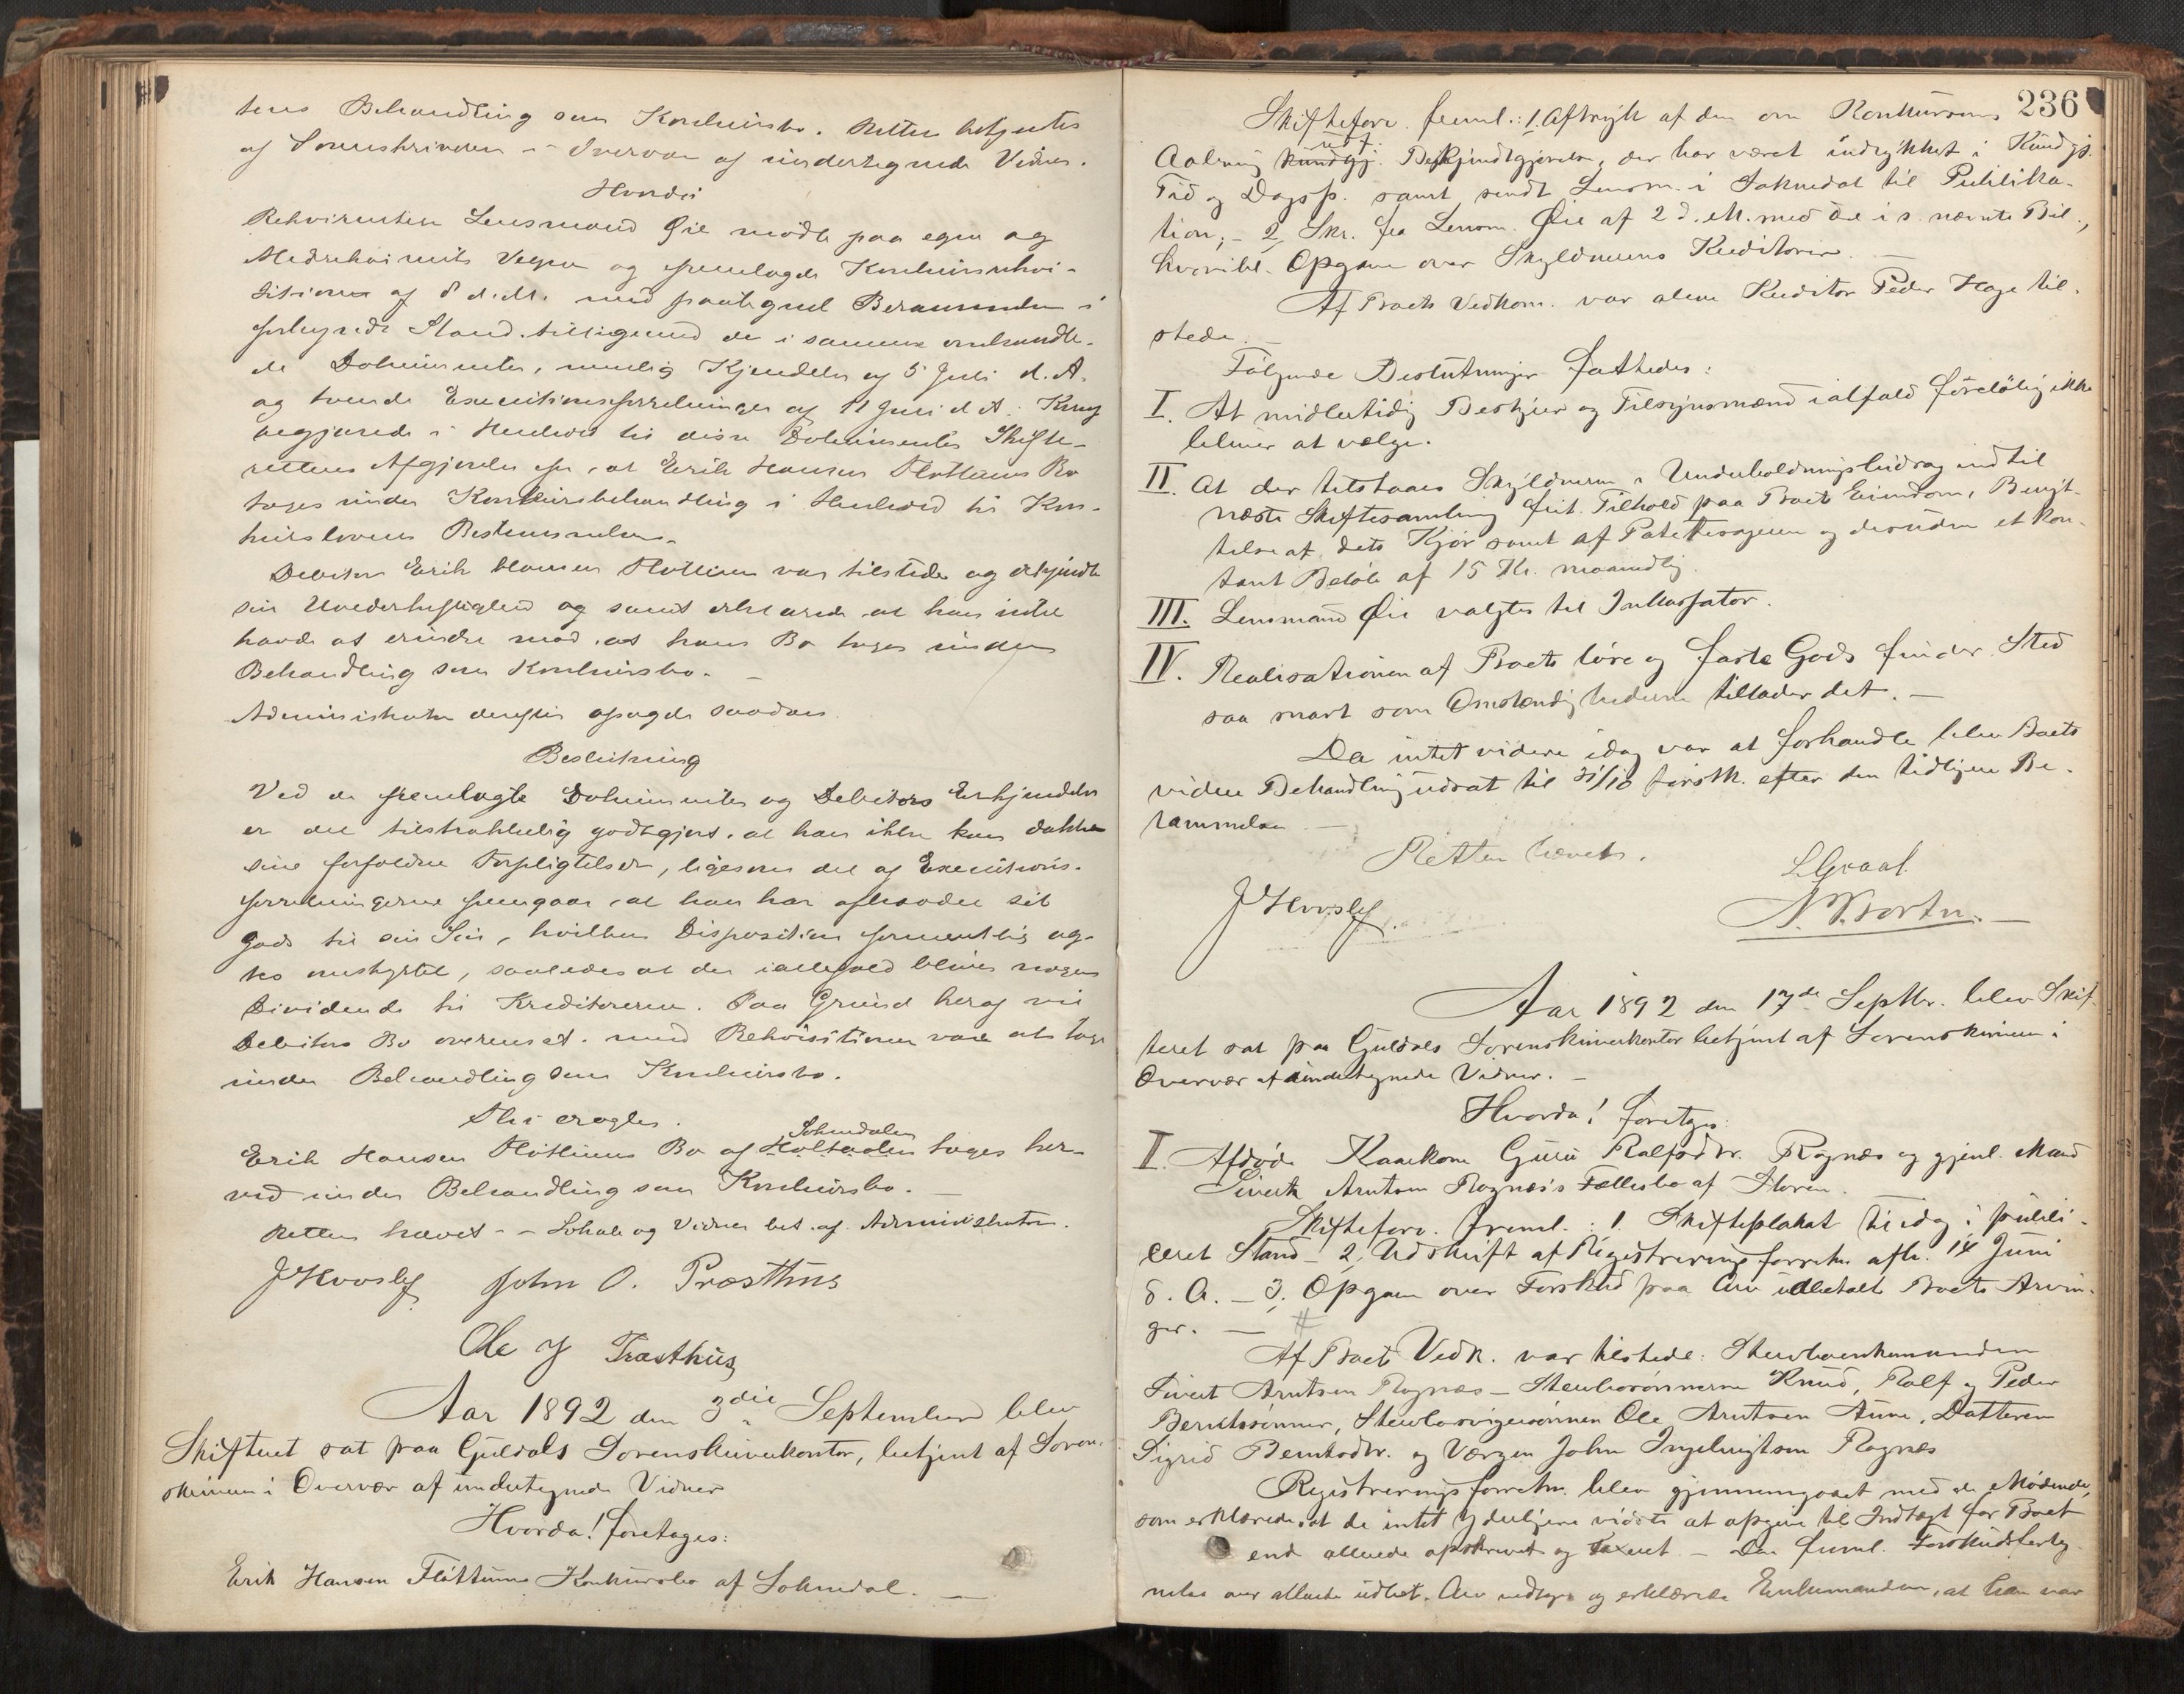 tens Behandling som Konkursbo. Retten betjentes
af Sorenskriveren i Overvær af undertegnede Vidner.
Hvorda
Rekvirenten Lensmand Øie mødte paa egne og
Medrekvirents Vegne og fremlagde Konkursrekvi-
sitionen af 8 d.M. med paategnet Berammelse i
forkyndt Stand tilligemed de i samme omhandle-
de Dokumenter, nemlig Kjendelse af 5 Juli d.A.
og tvende Executionsforretninger af 11 Juli d A. Han
begjærede i Henhold til disse Dokumenter Skifte-
rettens Afgjørelse for, at Erik Hansen Flottums Bo
tages under Konkursbehandling i Henhold til Kon-
kurslovens Bestemmelser.
Debitor Erik Hansen Flottum var tilstede og erkjendte
sin Uvederheftighed og samt erklærede at han intet
havde at erindre mod, at hans Bo tages under
Behandling som Konkursbo. —
Administrator derefter afsagde saadan
Beslutning
Ved de fremlagte Dokumenter og Debitors Erkjendelse
er det tilstrækkelig godtgjort, at han ikke kan dække
sine forfaldne Forpligtelser, ligesom det af Executions-
forretningerne fremgaar, at han har afhændet sit
Gods til sin Søn, hvilken Disposition formentlig ag-
tes omstyrtet, saaledes at der iallefald bliver nogen
Dividende til Kreditorerne. Paa Grund heraf vil
Debitors Bo overensst. med Rekvisitionen være at tage
under Behandling som Konkursbo.
Thi eragtes.
Soknedalen
Erik Hansen Flottums Bo af Holtaalen tages her-
ved under Behandling som Konkursbo. —
Retten hævet – – Lokale og Vidner bet. af Administrator.
J Hvoslef John O. Præsthus
Ole J Præsthus
Aar 1892 den 3die September blev
Skifteret sat paa Guldals Sorenskriverkontor, betjent af Soren-
skriveren i Overvær af undertegnede Vidner
Hvorda! foretages:
Erik Hansen Flottums Konkursbo af Soknedal. —
236
Skifteforv. freml.: 1. Aftryk af den om Konkursens
Aabning kundgj. Bekjendtgjørelse, der har været indrykket i Kundgj.
Tid og Dagsp. samt sendt Lensm. i Soknedal til Publika-
tion; – 2, Skr. fra Lensm. Øie af 2 d. M. med de i s. nævnte Bil.,
hvoribl. Opgave over Skyldnerens Kreditorer. —
Af Boets Vedkom. var alene Kreditor Peder Hage til-
stede. —
Følgende Beslutninger fattedes:
I. At midlertidig Bestyrer og Tilsynsmænd ialfald foreløbig ikke
bliver at vælge.
II. At der tilstaaes Skyldneren i Underholdningsbidrag indtil
næste Skiftesamling frit Tilhold paa Boets Eiendom, Benyt-
telse af dets Kjør samt af Potetesageren og desuden et kon-
tant Beløb af 15 Kr. maanedlig.
III. Lensmand Øie valgtes til Inkassator.
IV. Realisationen af Boets løse og faste Gods finder Sted
saa snart som Omstændighederne tillader det. —
Da intet videre idag var at forhandle blev Boets
videre Behandling udsat til 31/10 førstk. efter den tidligere Be-
rammelse —
Retten hævet.
J Hvoslef.
L Graal.
N. Bortn. —
Aar 1892 den 17de Septbr. blev Skif-
teret sat paa Guldals Sorenskriverkontor betjent af Sorenskriveren i
Overvær af undertegnede Vidner. —
Hvorda! foretages:
I. Afdøde Kaarkone Guru Ralfsdtr. Rognæs og gjenl. Mand
Sivert Arntsen Rognæs's Fællesbo af Støren.
Skifteforv. freml.: 1. Skifteplakat til idag i publi-
ceret Stand – 2, Udskrift af Registreringsforretn. afh. 14 Juni
d. A. – 3, Opgave over Forskud paa Arv udbetalt Boets Arvin-
ger. — #
Af Boets Vedk. var tilstede: Sterboenkemanden
Sivert Arntsen Rognæs – Sterbosønnerne Knud, Ralf og Peder
Berntssønner, Sterbosvigersønnen Ole Arntsen Aune, Datteren
Sigrid Berntsdtr. og Værgen John Ingebrigtsen Rognæs
Registreringsforretn. blev gjennemgaaet med de Mødende,
som erklærede, at de intet yderligere vidste at opgive til Indtægt for Boet
end allerede opskrevet og taxeret. – Den freml. Forskudsforteg-
nelse over allerede udbet. Arv vedtoges og erklærede Enkemanden, at han var